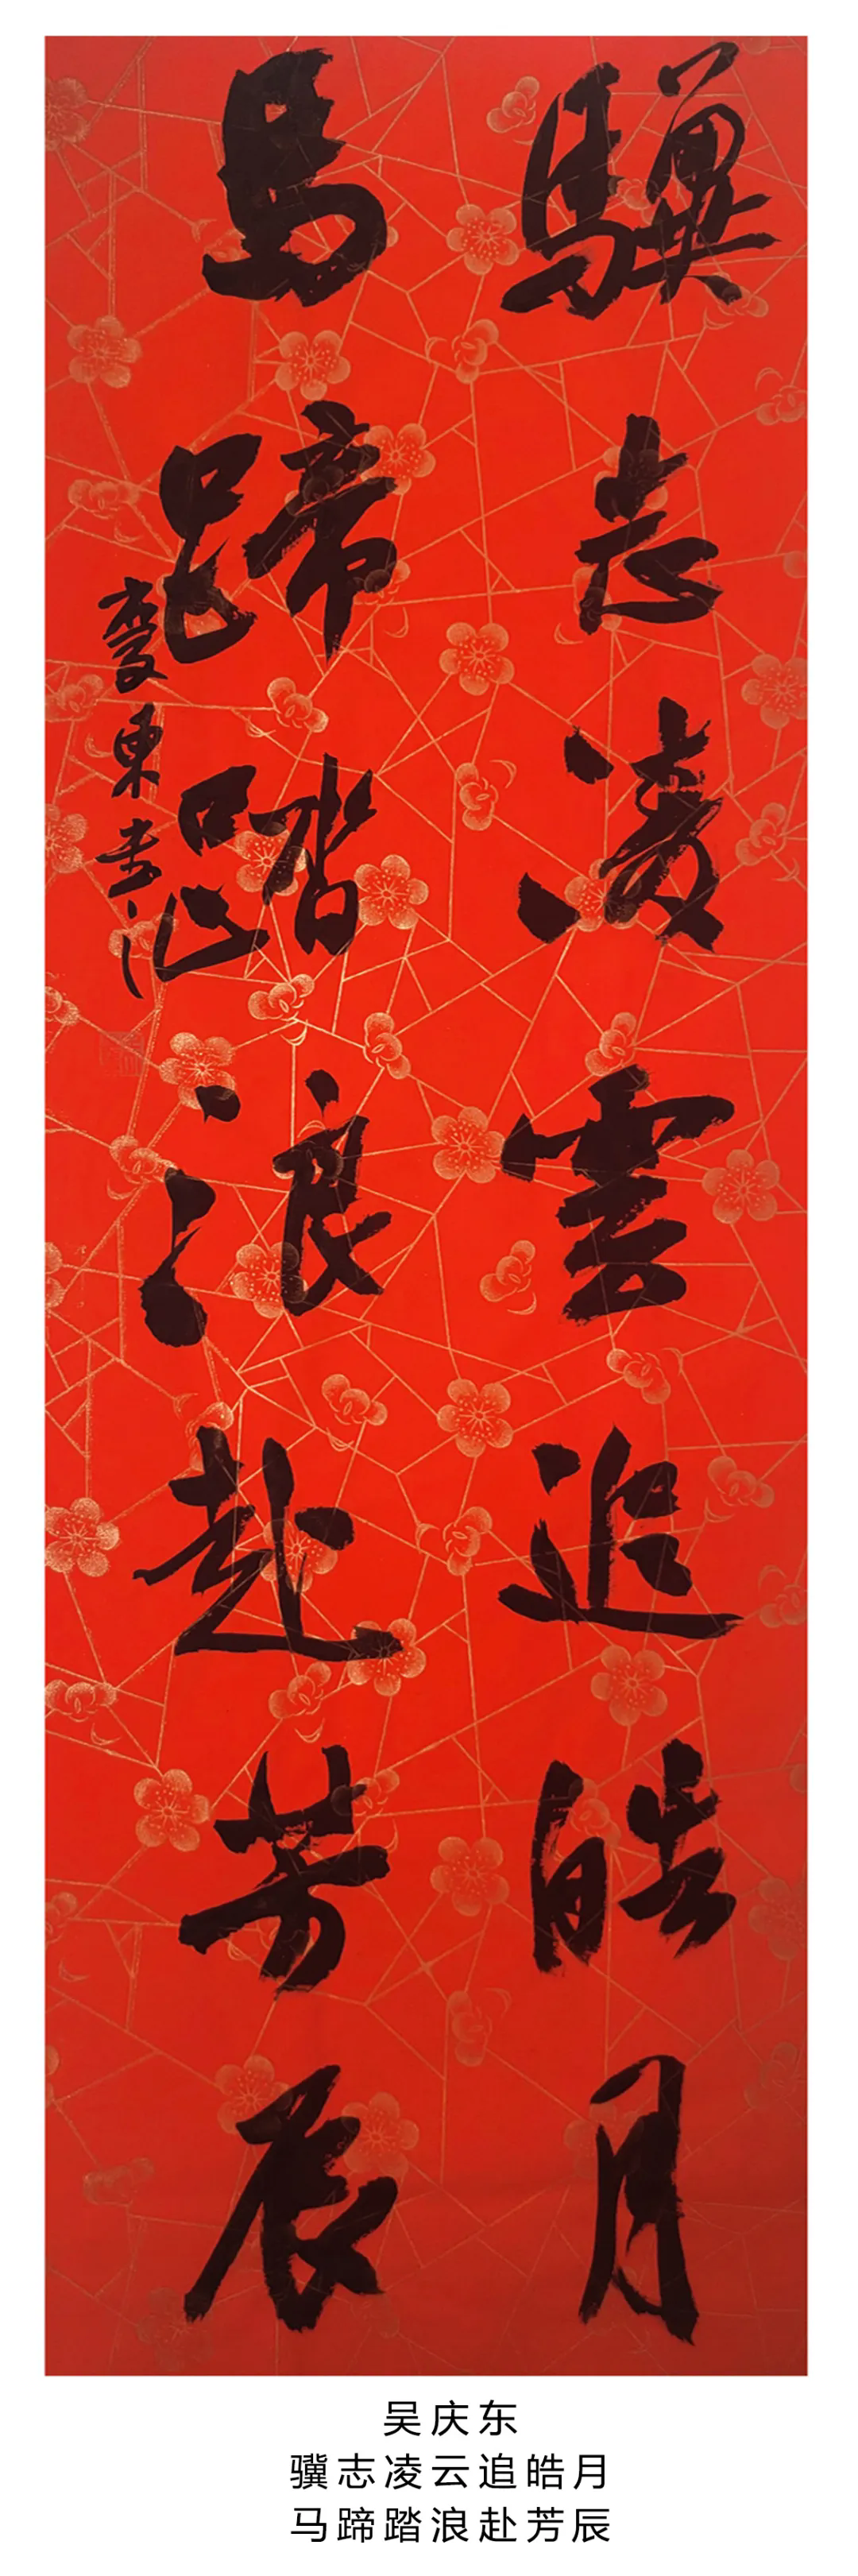 驥志凌雲追皓月
馬蹄踏浪赴芳辰
慶東書
吴庆东
骥志凌云追皓月
马蹄踏浪赴芳辰